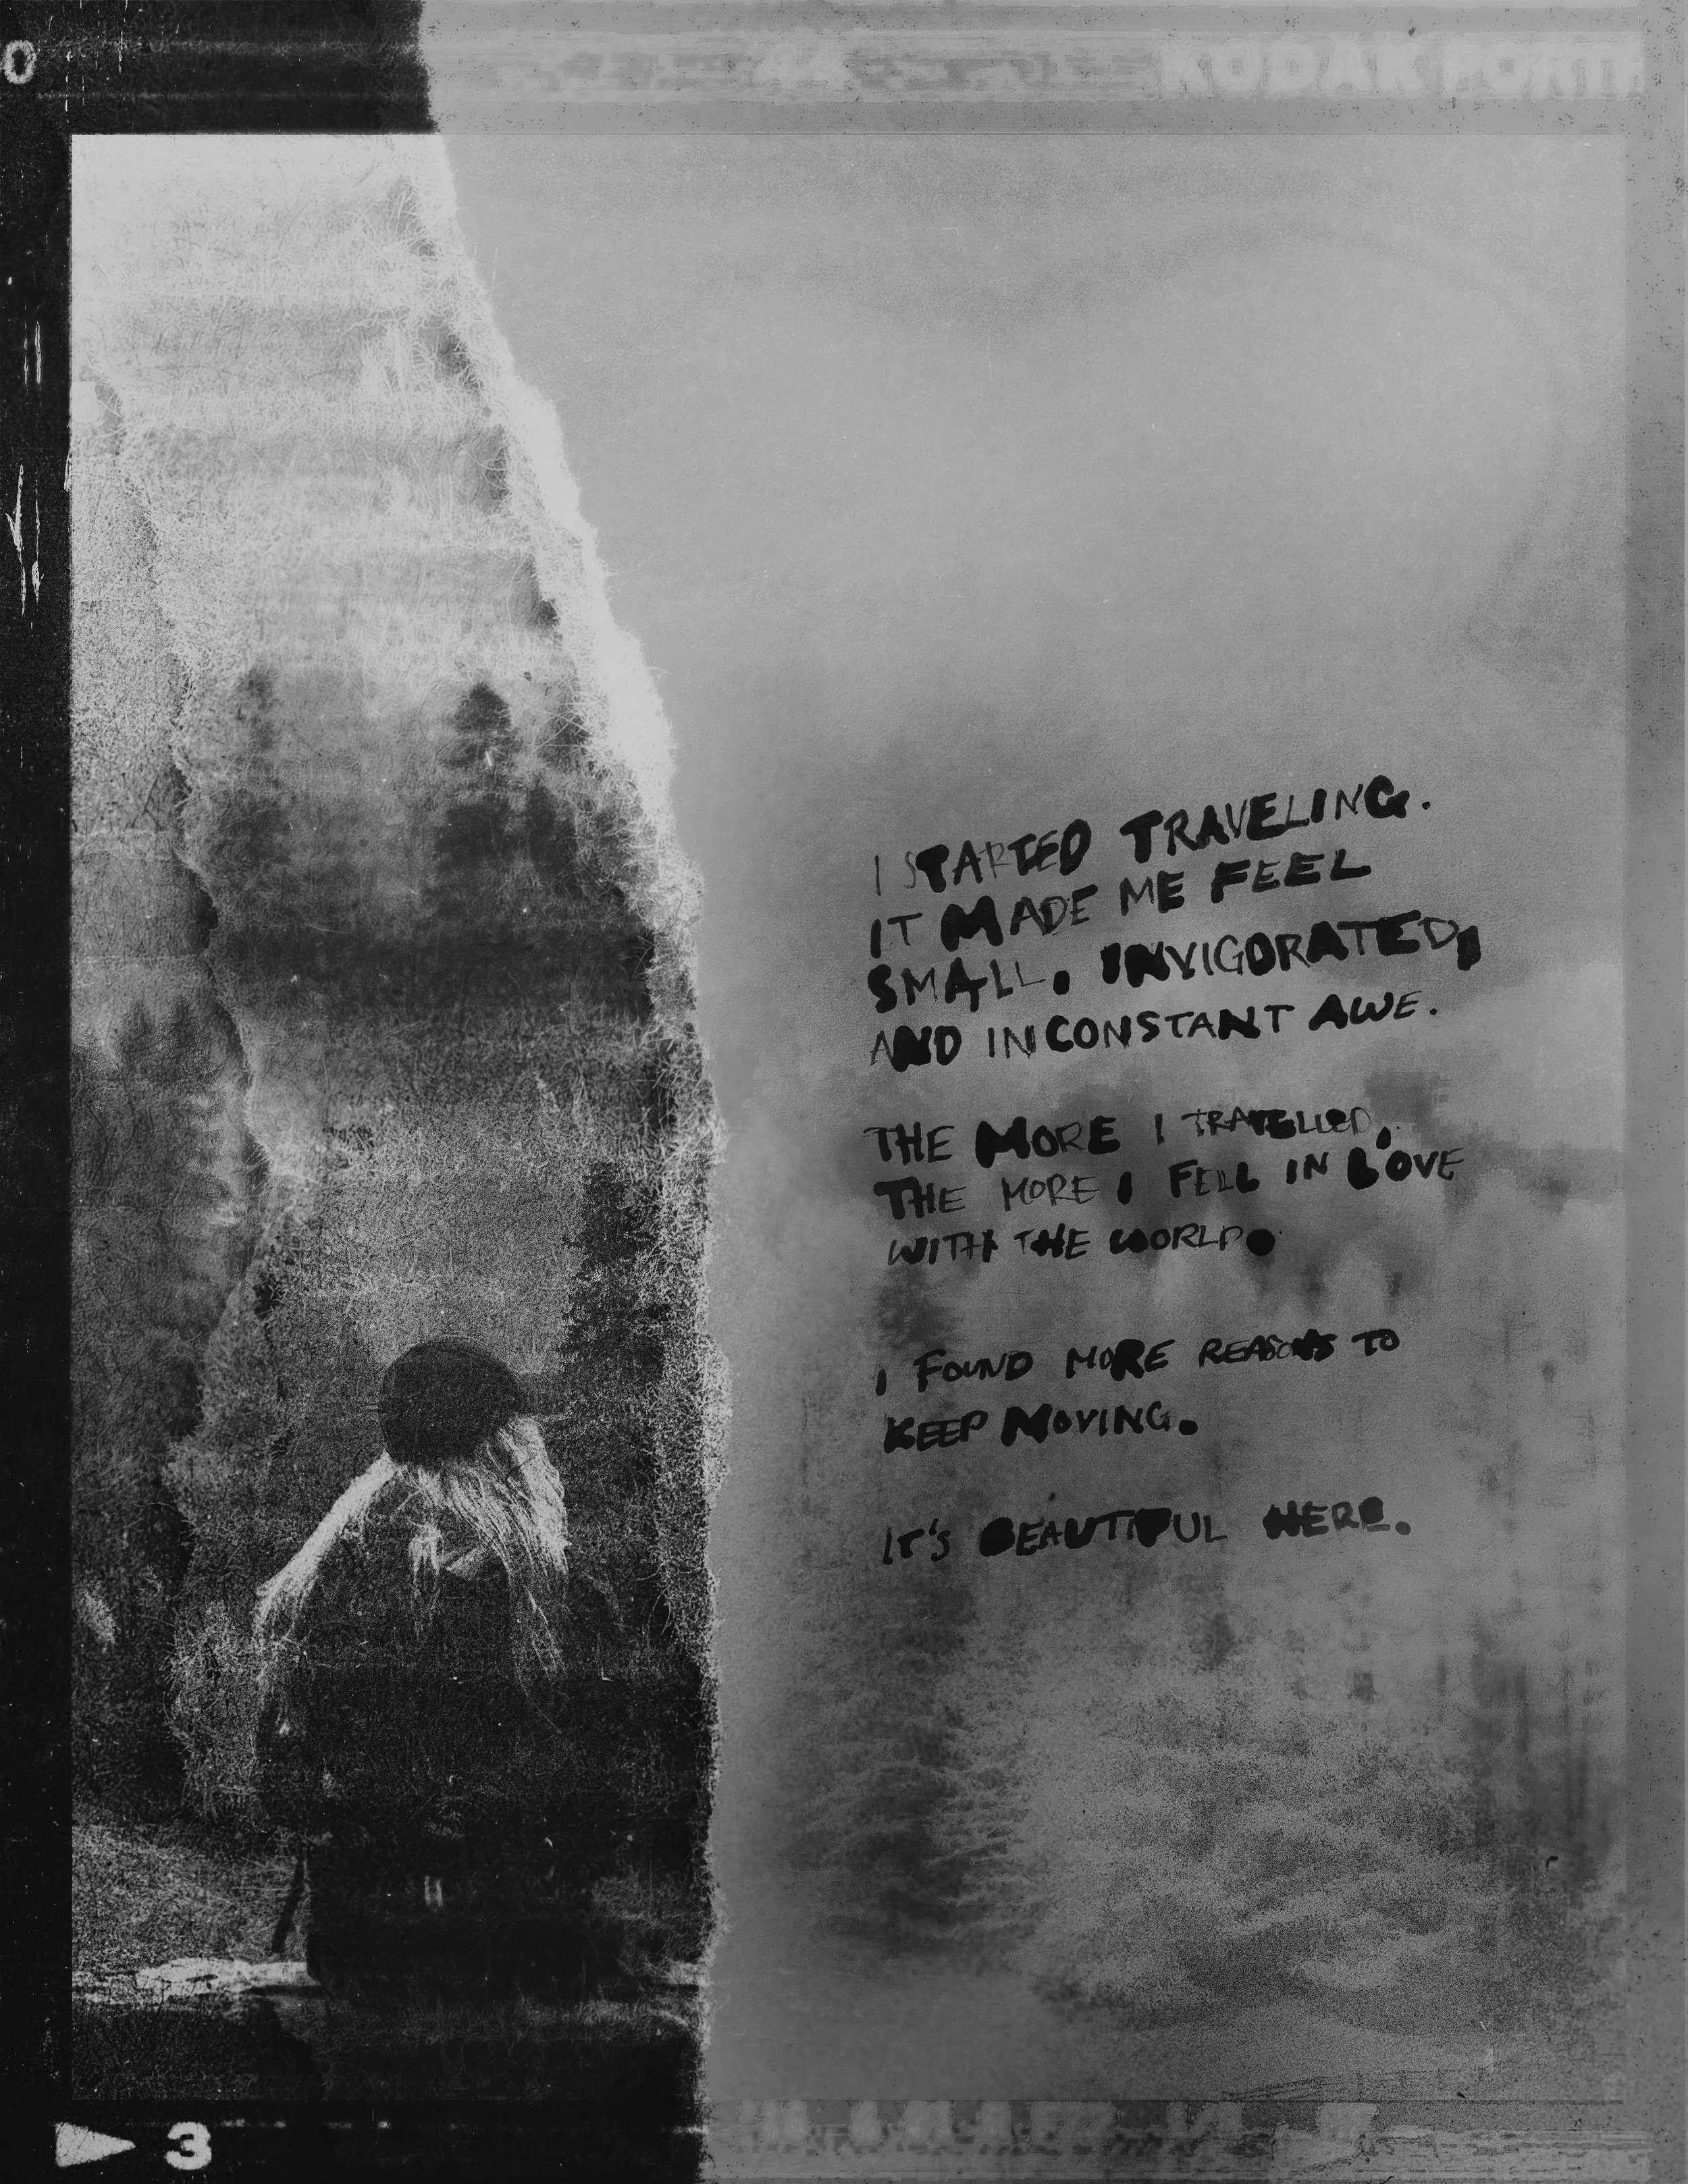 0
44
KODAK PORTR
I STARTED TRAVELING.
IT MADE ME FEEL
SMALL, INVIGORATED,
AND IN CONSTANT AWE.
THE MORE I TRAVELLED,
THE MORE I FELL IN LOVE
WITH THE WORLD.
I FOUND MORE REASONS TO
KEEP MOVING.
IT'S BEAUTIFUL HERE.
3